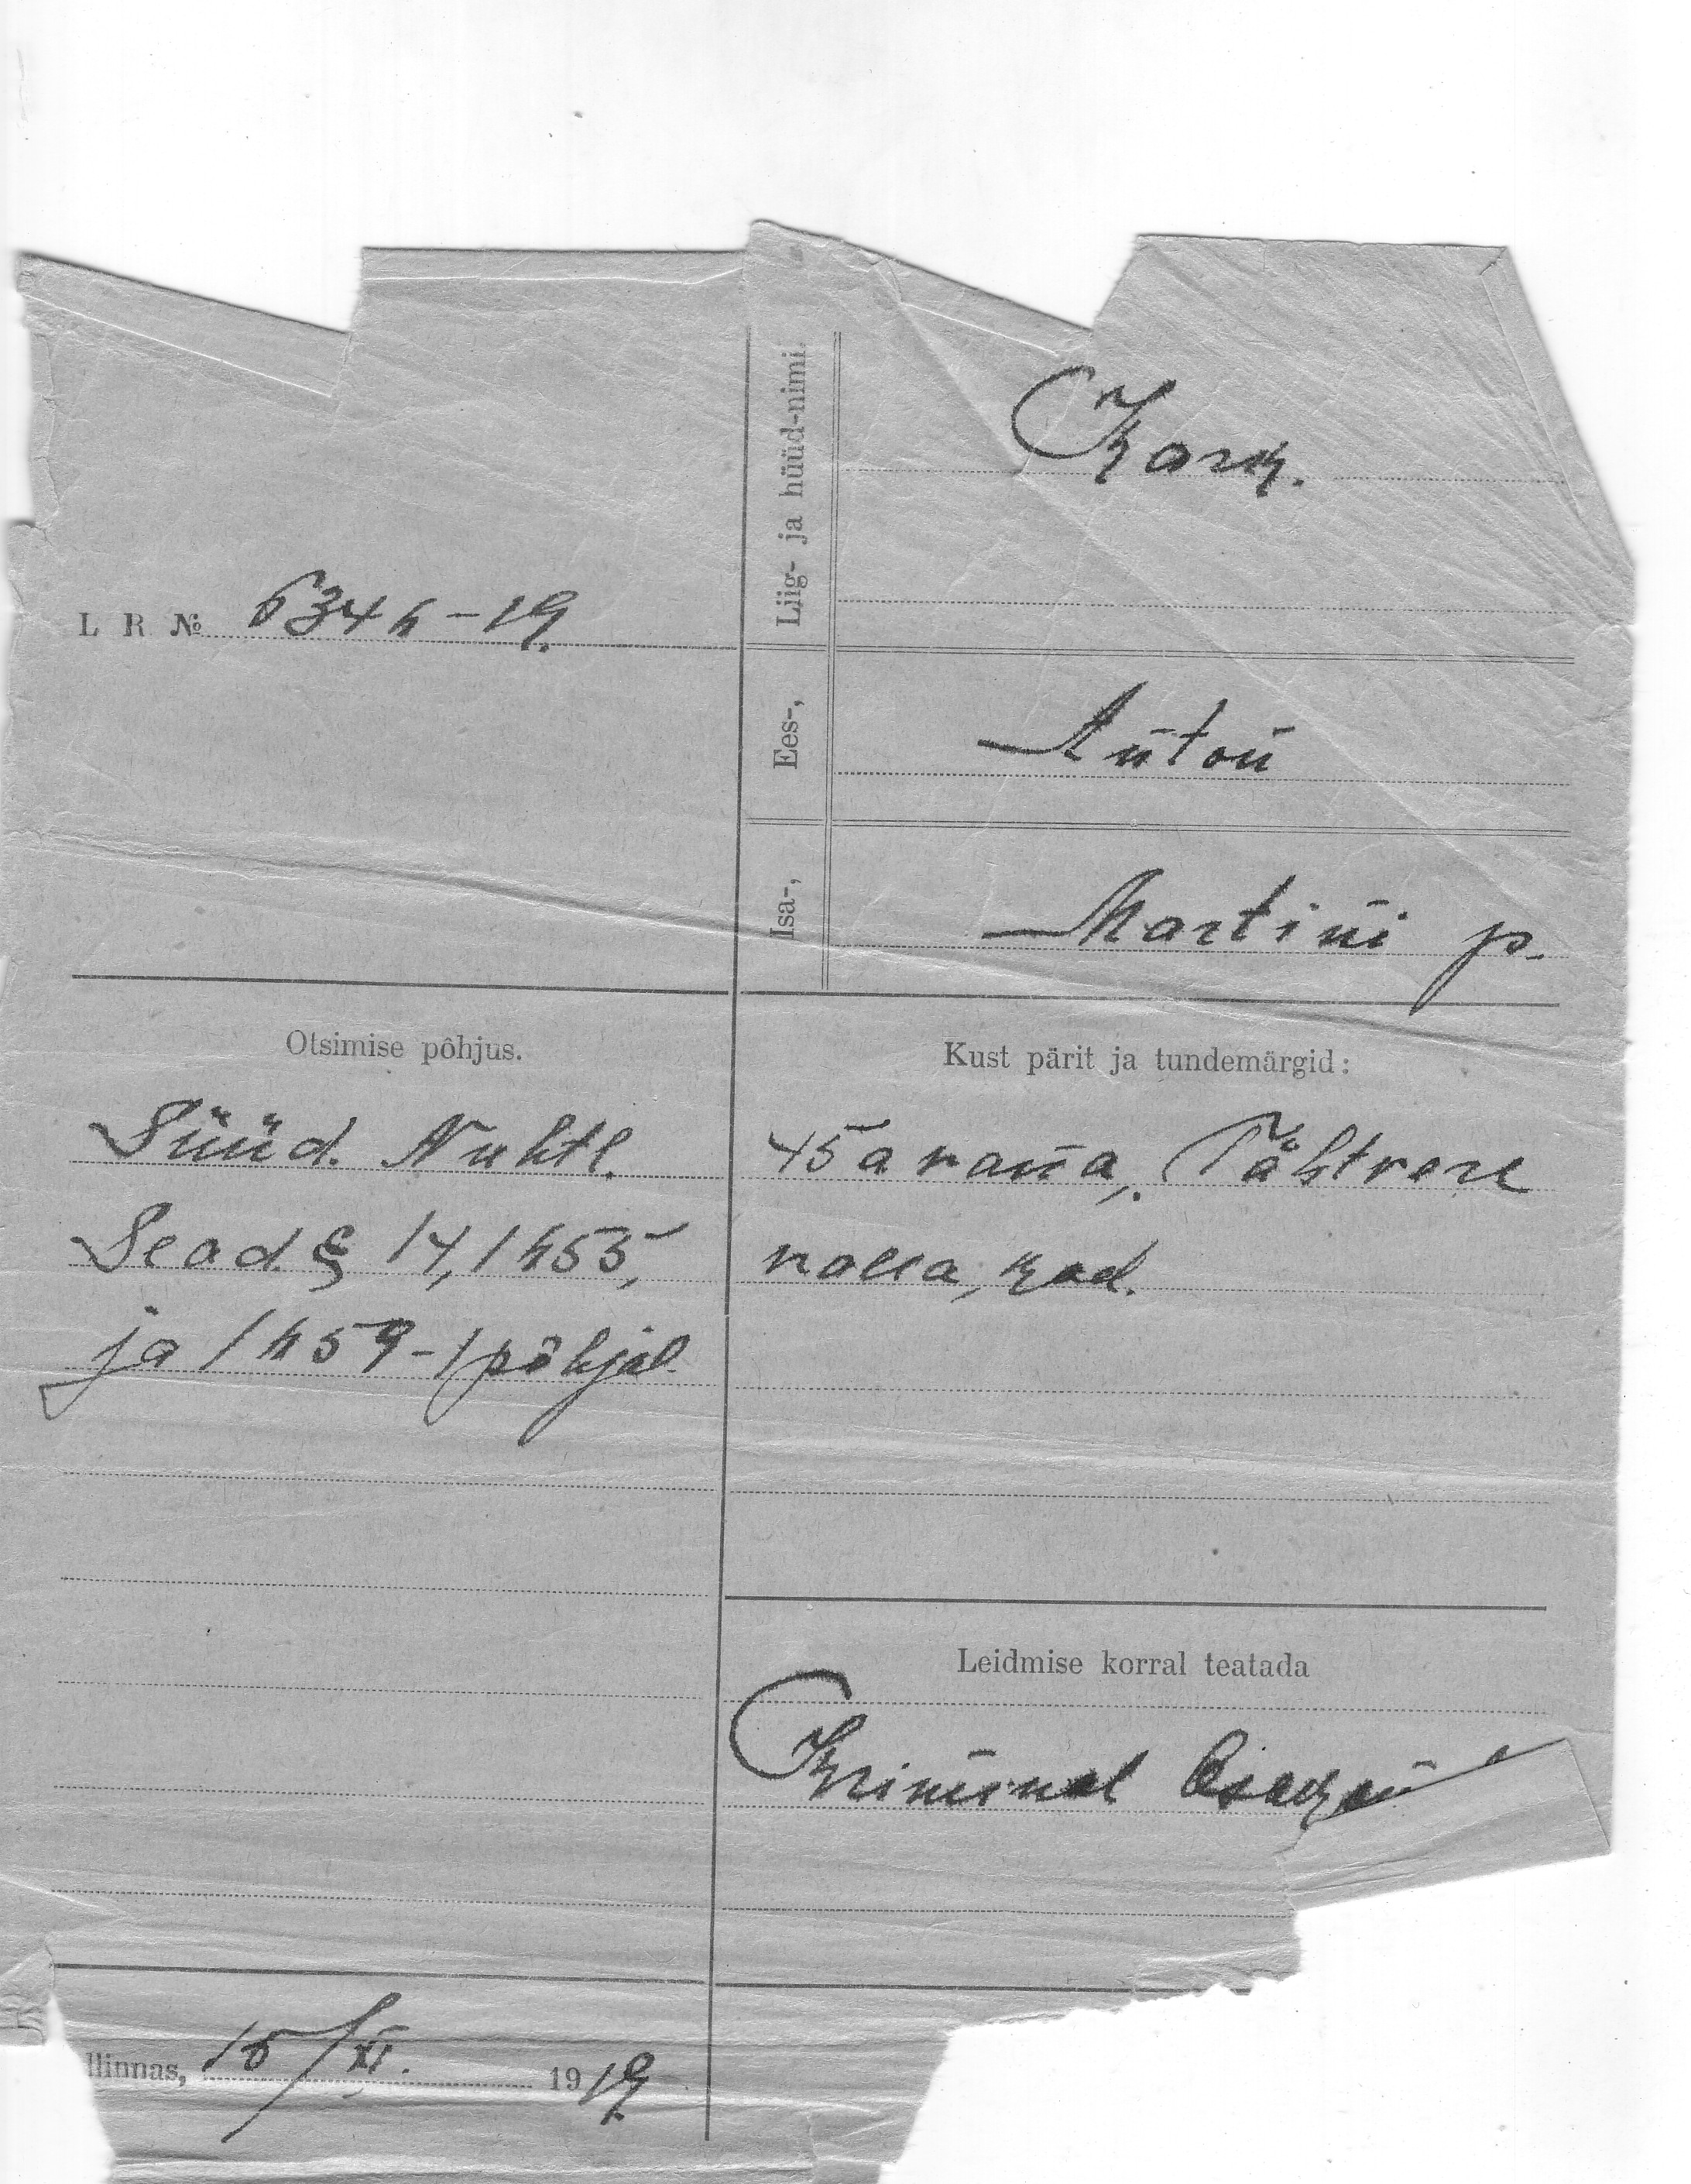 Liig- ja hüüd-nimi.
Kark.
L R № 5346-19.
Ees-,
Anton
Isa-,
Martini p.
Otsimise põhjus.
Süüd. Nuhtl.
Sead. § 14, 1655,
ja 1659-1 põhjal
Kust pärit ja tundemärgid:
45 a vana, Tähtvere
valla, kod.
Leidmise korral teatada
Kriminal Osakon
llinnas, 15/XI. 1919.